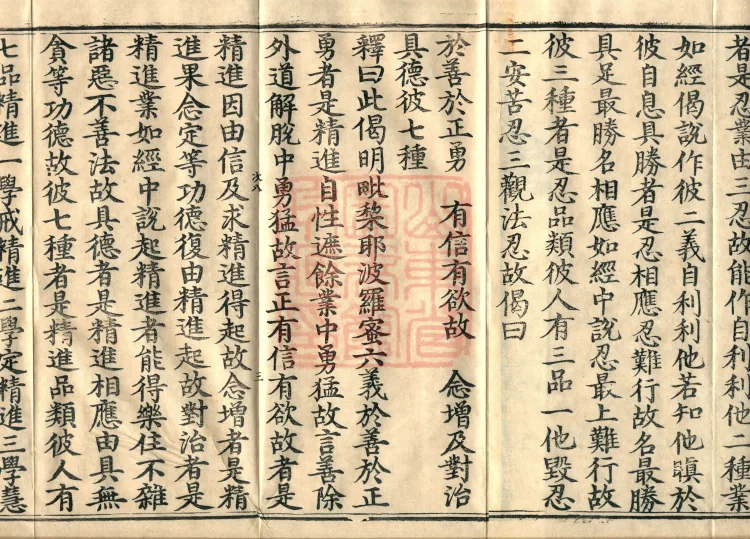 者是忍業由三忍故能作自利利他二種業
如經偈說作彼二義自利利他若知他瞋於
彼自息具勝者是忍相應忍難行故名最勝
具足最勝名相應如經中說忍最上難行故
彼三種者是忍品類彼人有三品一他毀忍
二安苦忍三觀法忍故偈曰
於善於正勇　有信有欲故　念增及對治
具德彼七種
釋曰此偈明毗棃耶波羅蜜六義於善於正
勇者是精進自性遮餘業中勇猛故言善除
外道解脫中勇猛故言正有信有欲故者是
精進因由信及求精進得起故念增者是精
進果念定等功德復由精進起故對治者是
精進業如經中說起精進者能得樂住不雜
諸惡不善法故具德者是精進相應由具無
貪等功德故彼七種者是精進品類彼人有
七品精進一學戒精進二學定精進三學慧